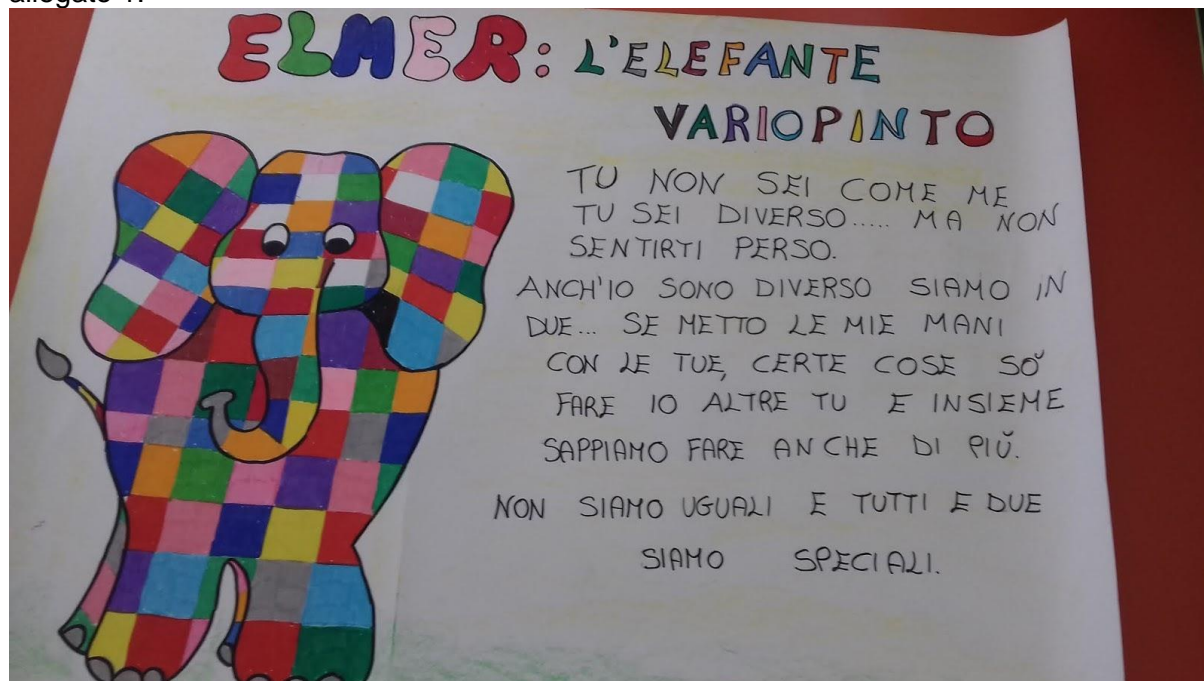 allegato 1.
ELMER: L'ELEFANTE
VARIOPINTO
TU NON SEI COME ME
TU SEI DIVERSO..... MA NON
SENTIRTI PERSO.
ANCH'IO SONO DIVERSO SIAMO IN
DUE... SE METTO LE MIE MANI
CON LE TUE, CERTE COSE SÒ
FARE IO ALTRE TU E INSIEME
SAPPIAMO FARE ANCHE DI PIÙ.
NON SIAMO UGUALI E TUTTI E DUE
SIAMO SPECIALI.